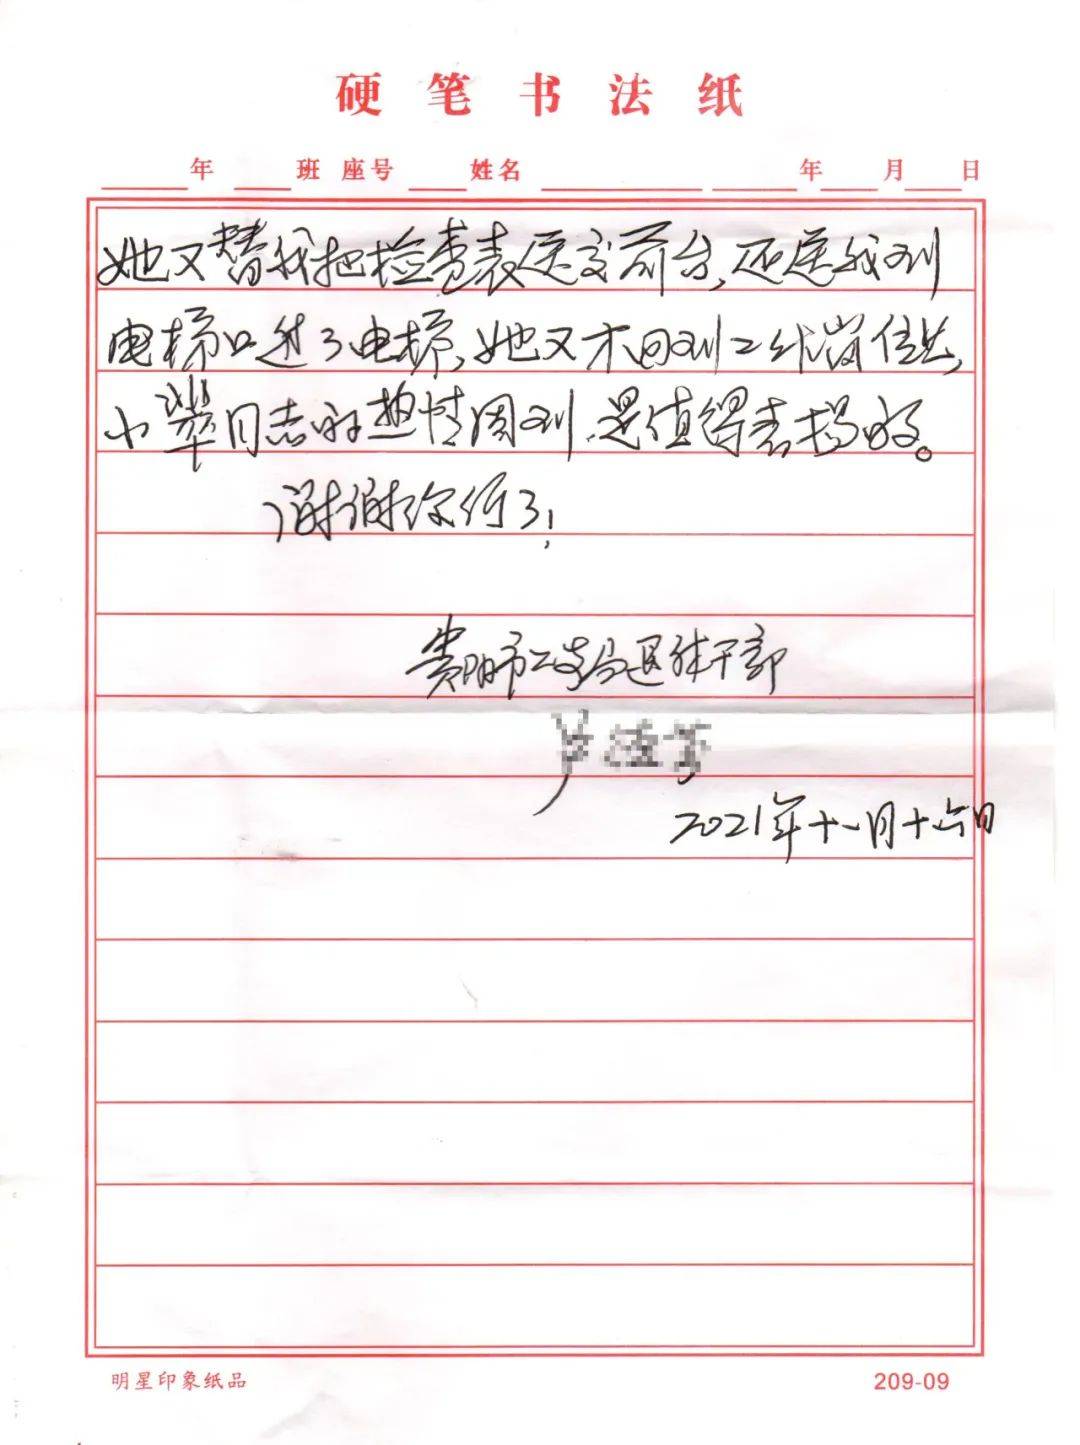 硬笔书法纸
年 班 座号 姓名 年 月 日
她又替我把检查表送交前台,还送我到
电梯口进了电梯,她又才回到工作岗位上,
小翠同志的热情周到,是值得表扬的。
谢谢你们了!
贵阳市公安局退休干部
2021年十一月十六日
明星印象纸品 209-09